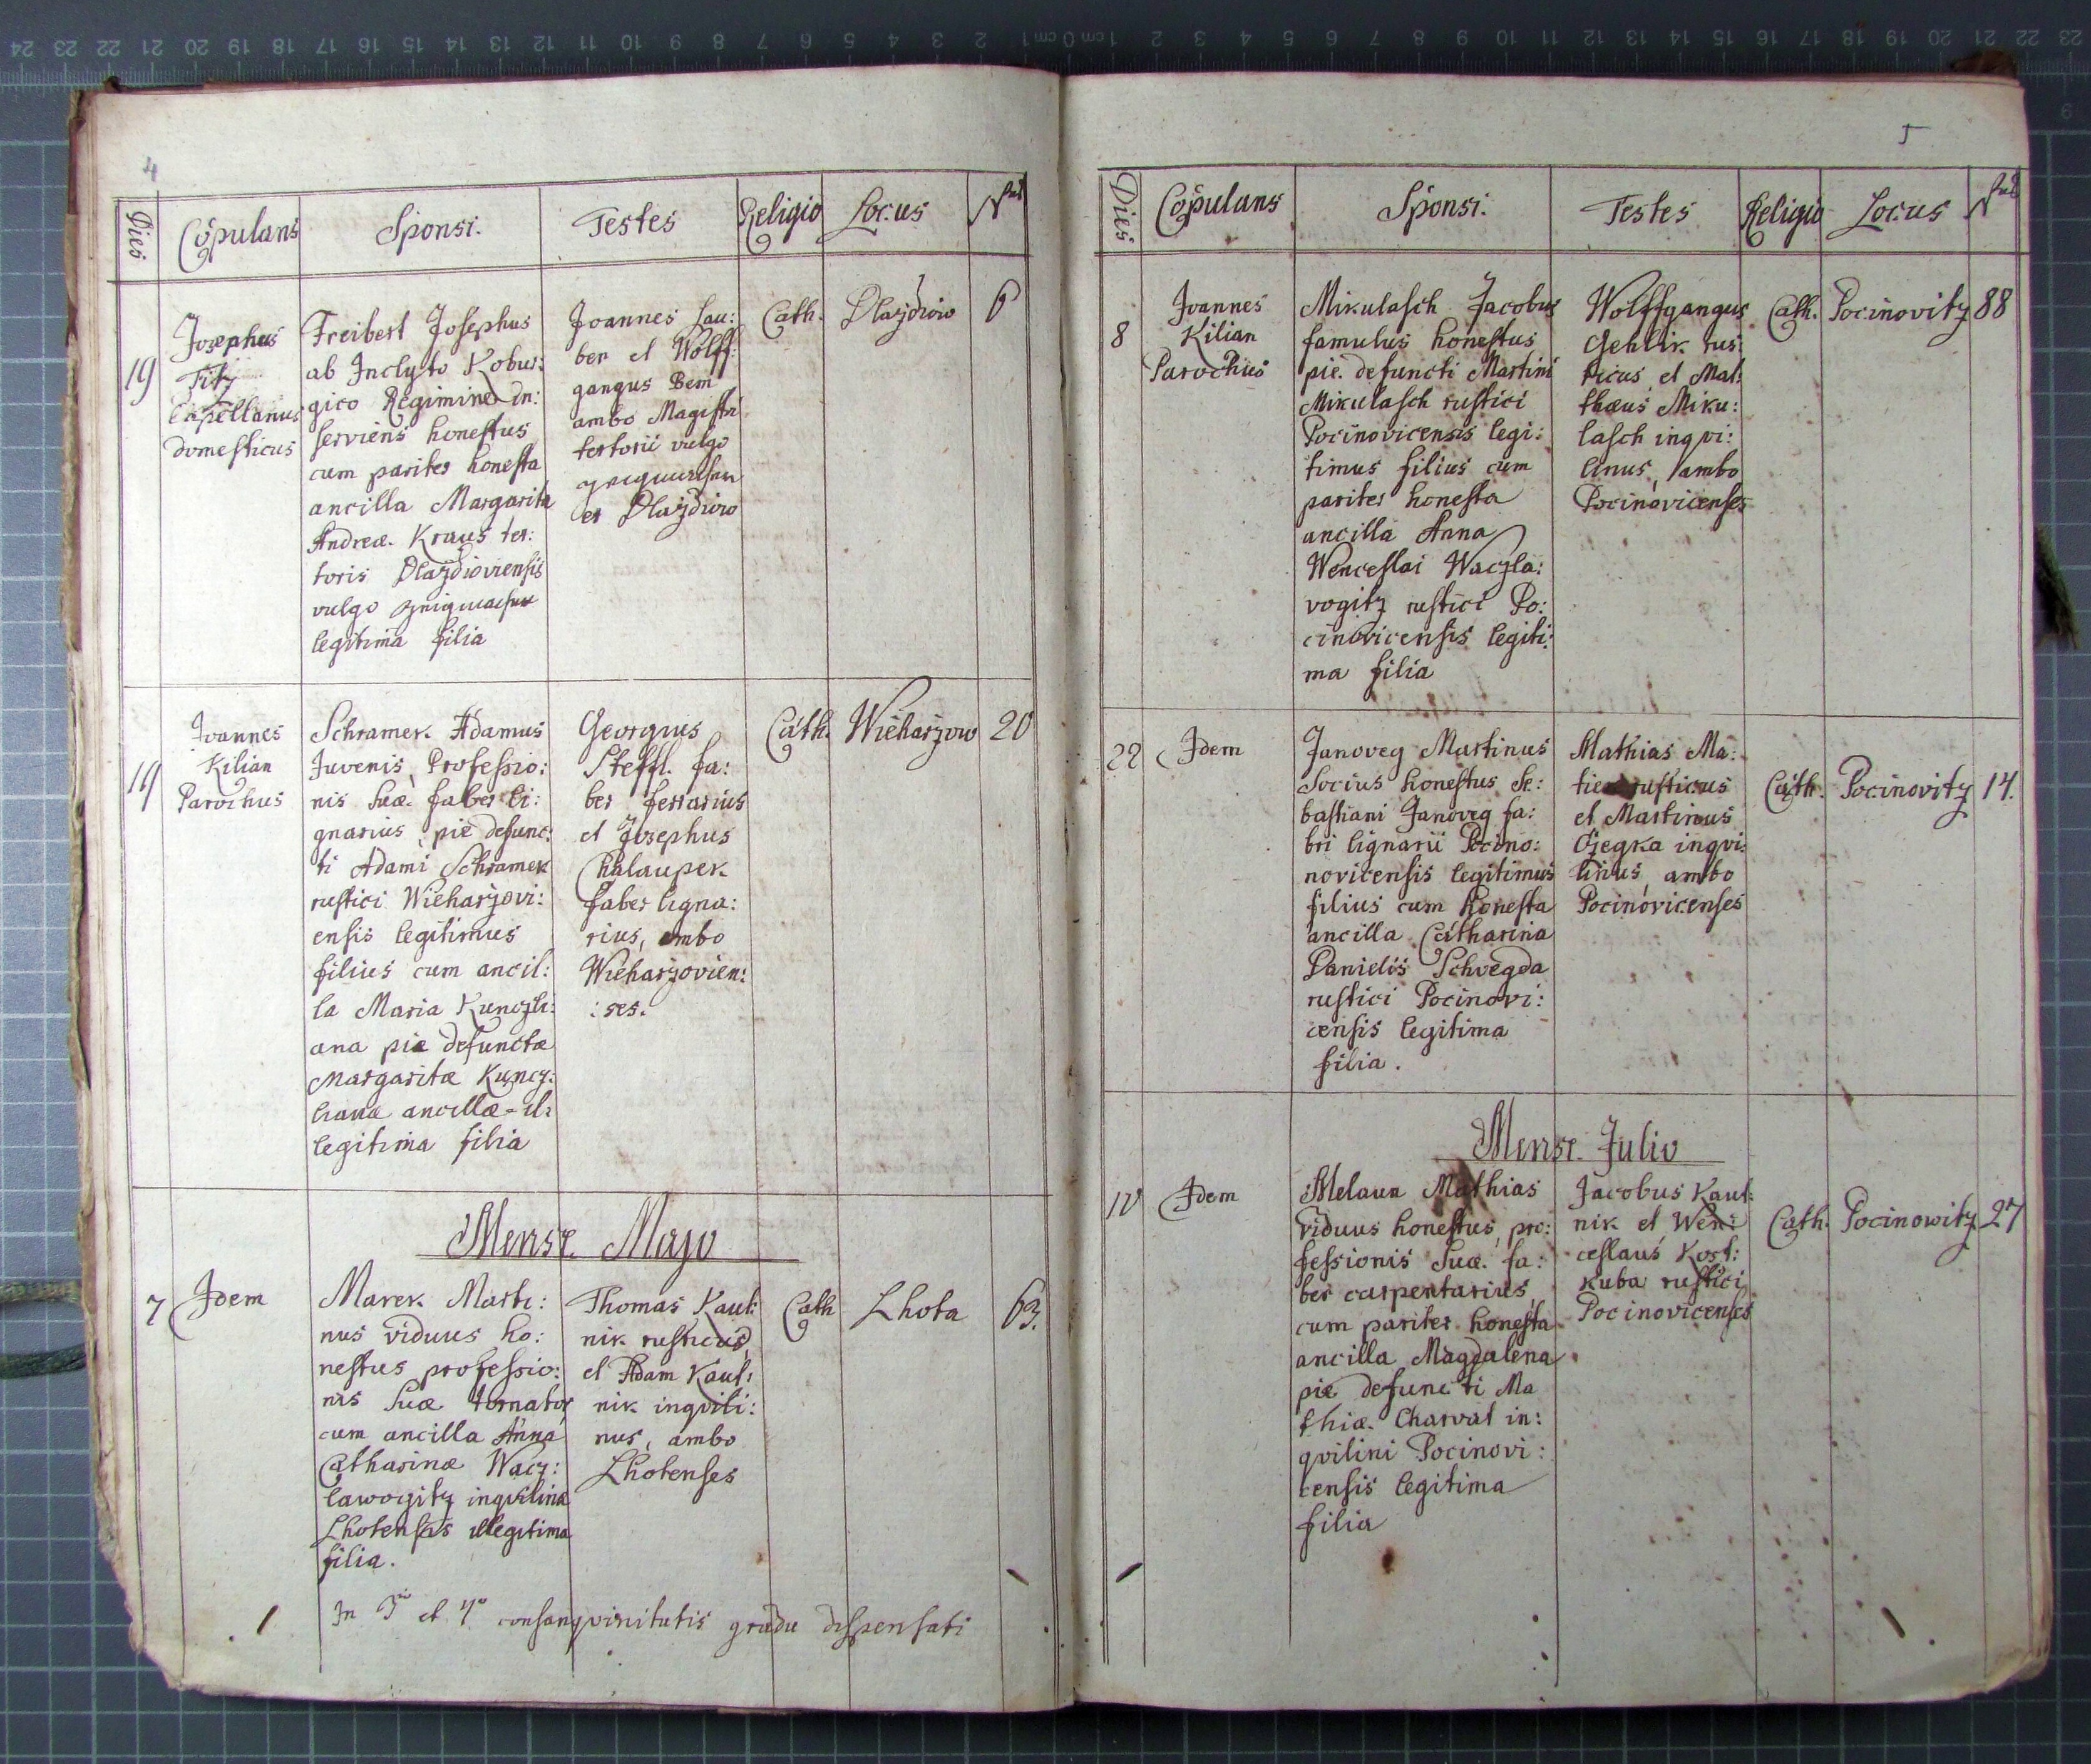 4
Dies
Copulans
Sponsi.
Testes
Religio
Locus
19
Josephus
Titz
Capellanus
domesticus
Freibert Josephus
ab Inclyto Kobur:
gico Regimine in:
serviens honestus
cum pariter honesta
ancilla Margarita
Andreæ Kraus tex:
toris
vulgo
legitima filia
Joannes Lau:
ber et Wolff:
gangus Bem
ambo Magistri
textorii vulgo
ex
Cath.
6
19
Joannes
Kilian
Parochus
Schramek Adamus
Juvenis, Professio:
nis suæ faber li:
gnarius, pie defunc:
ti Adami Schramek
rustici Wieharzovi:
ensis legitimus
filius cum ancil:
la Maria Kunczli:
ana pie defunctæ
Margaritæ Kuncz:
lianæ ancillæ il:
legitima filia
Georgius
Steffl. fa:
ber ferrarius
et Josephus
Chalaupek
faber ligna:
rius, ambo
Wieharzovien:
:ses.
Cath.
Wieharzow
20
Mense Majo
7
Idem
Marek Marti:
nus viduus ho:
nestus professio:
nis suæ tornator,
cum ancilla Anna
Catharinæ Wacz:
lawogitz inqvilinæ
Lhotensis illegitima
filia.
Thomas Kaut:
nik rusticus,
et Adam Kaut:
nik inqvili:
nus, ambo
Lhotenses
Cath
Lhota
63.
In 3io et 4o consanqvinitatis gradu dispensati
5
Dies
Copulans
Sponsi.
Testes
Religio
Locus
8
Joannes
Kilian
Parochus
Mikulasch Jacobus
famulus honestus
pie defuncti Martini
Mikulasch rustici
Pocinovicensis legi:
timus filius cum
pariter honesta
ancilla Anna
Wenceslai Waczla:
vogitz rustici Po:
cinovicensis legiti:
ma filia
Wolffgangus
Gehlik rus:
ticus, et Mat:
thæus Miku:
lasch inqvi:
linus, ambo
Pocinovicenses
Cath.
Pocinovitz
88
22
Idem
Janoveg Martinus
Socius honestus Se:
bastiani Janoveg fa:
bri lignarii Pocino:
novicensis legitimus
filius cum honesta
ancilla Catharina
Danielis Schvegda
rustici Pocinovi:
censis legitima
filia.
Mathias Ma:
rusticus
et Martinus
Cžegka inqvi:
linus, ambo
Pocinovicenses
Cath.
Pocinovitz
14.
Mense Julio
10
Idem
Melaun Mathias
viduus honestus, pro:
fessionis suæ fa:
ber carpentarius,
cum pariter honesta
ancilla Magdalena
pie defuncti Ma
thiæ Charvat in:
qvilini Pocinovi:
censis legitima
filia
Jacobus Kaut:
nik et Wen:
ceslaus Kost:
kuba rustici
Pocinovicenses
Cath.
Pocinowitz
27